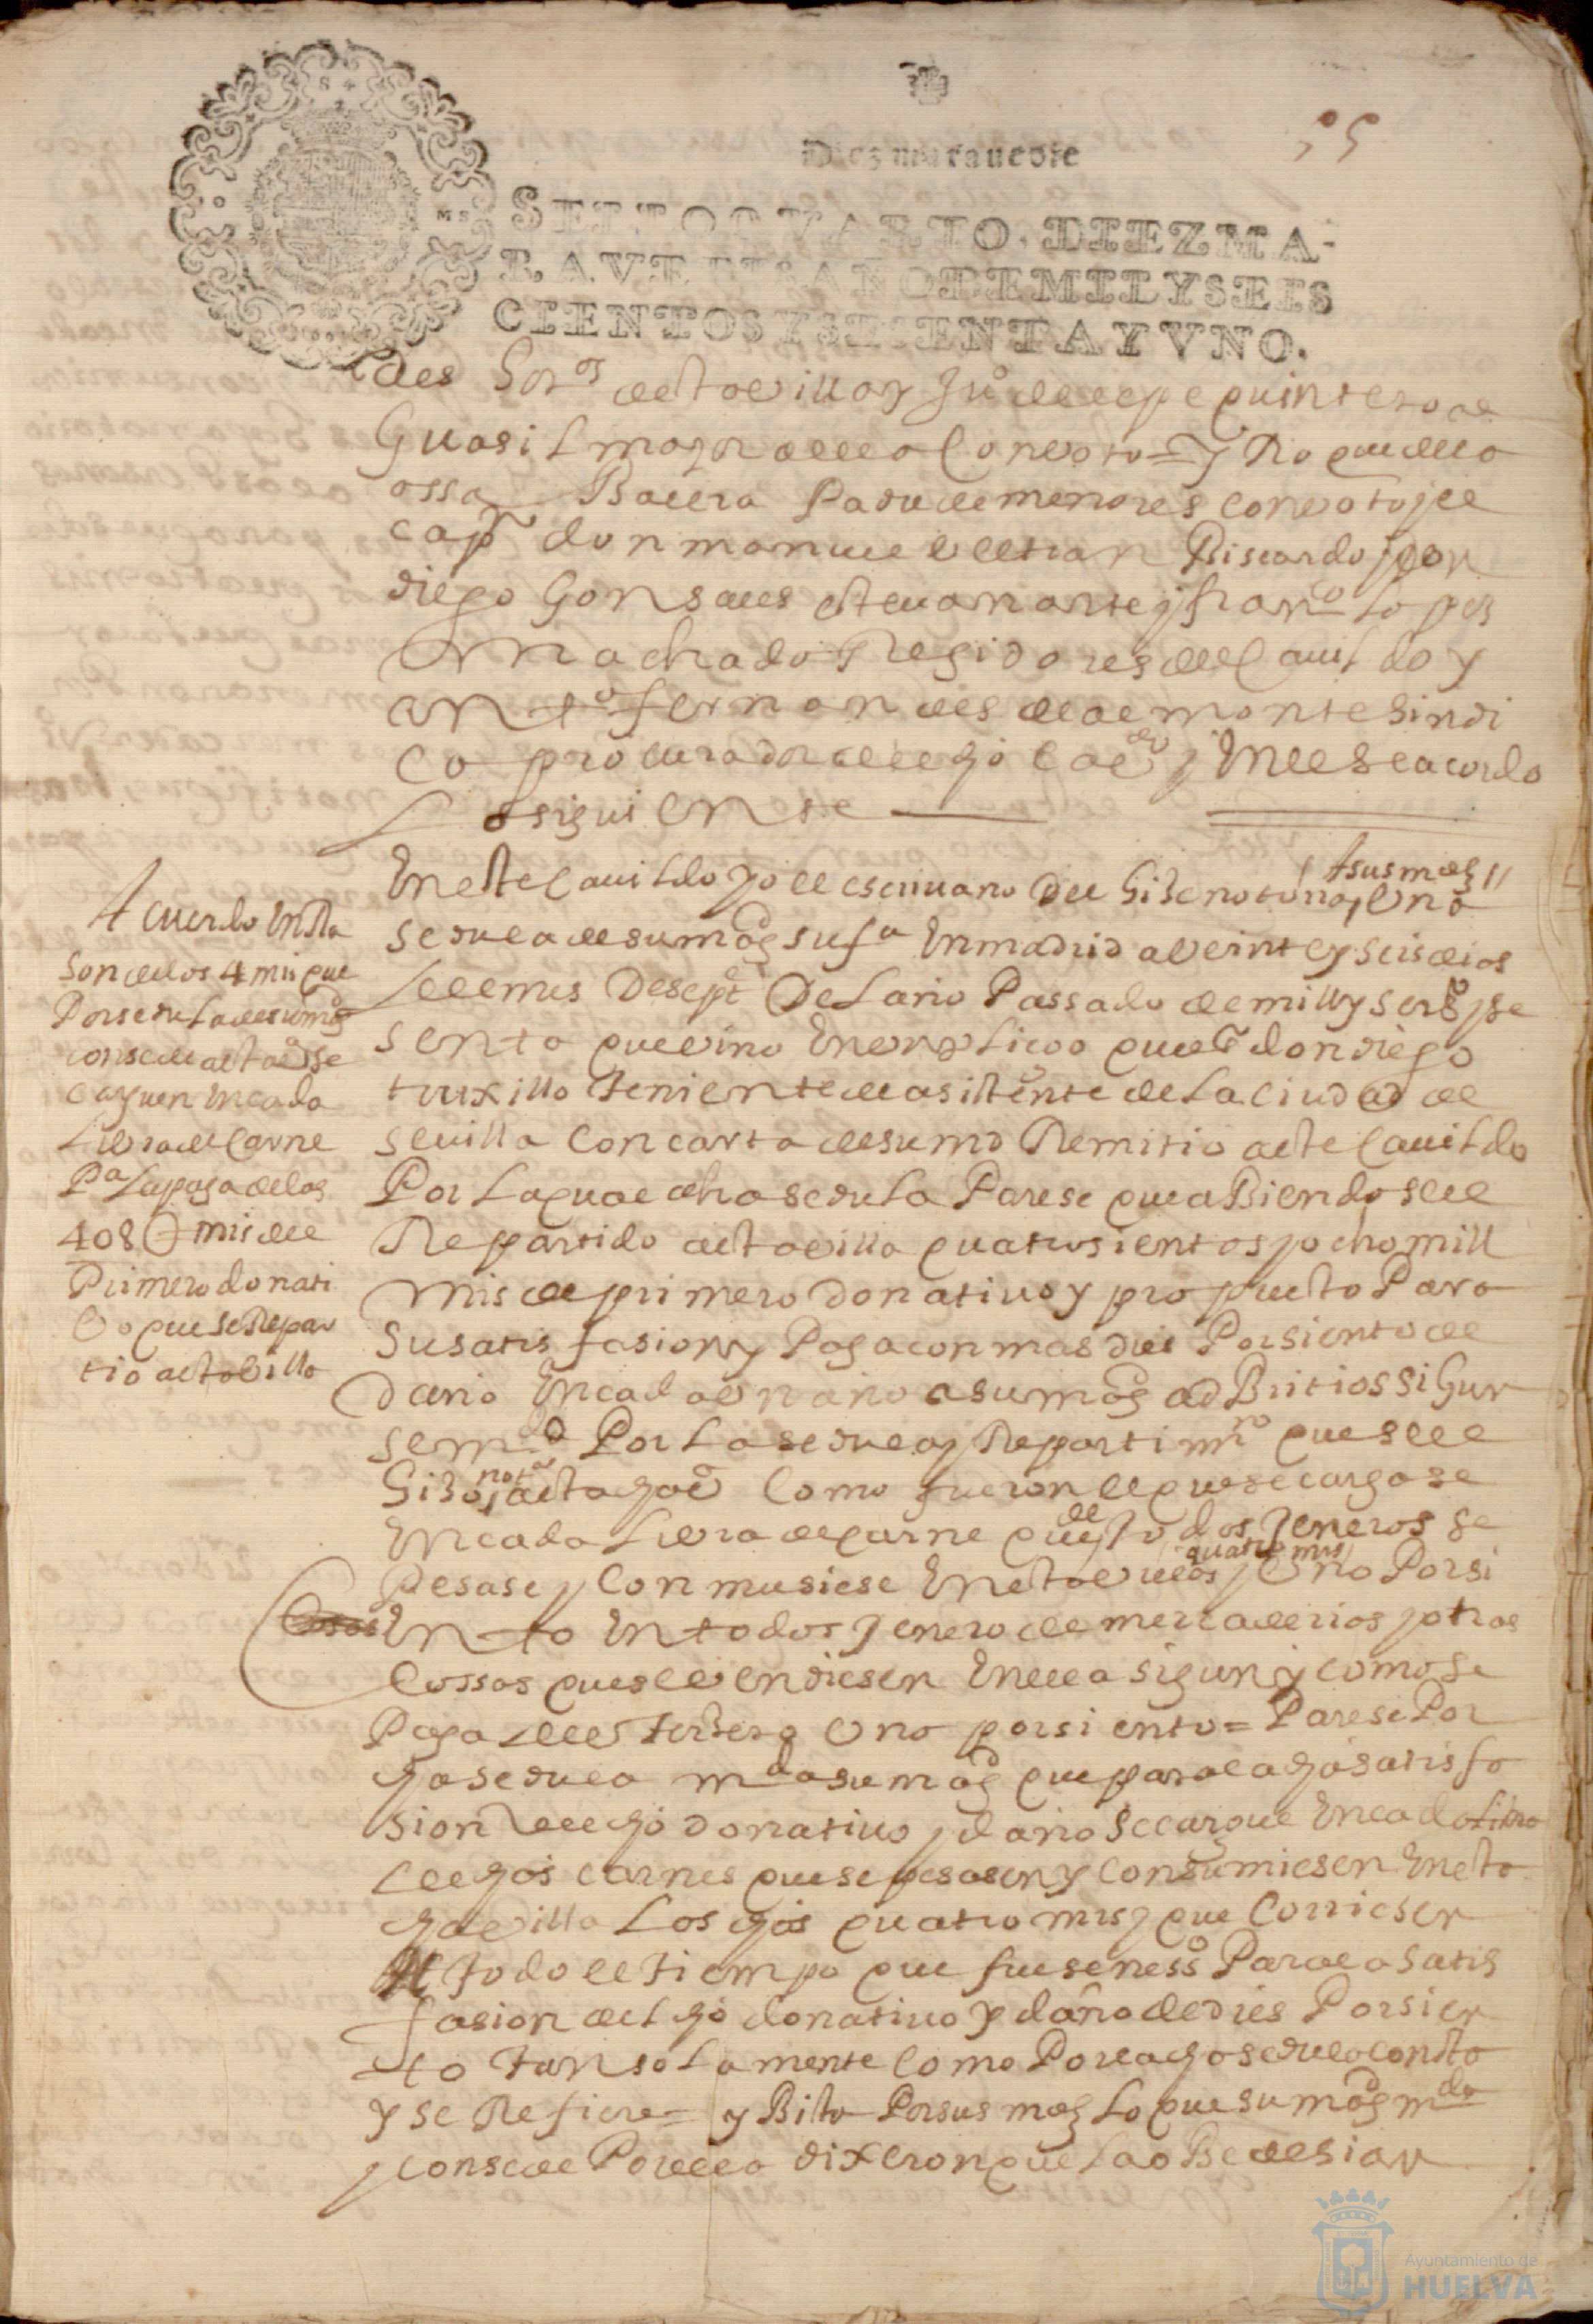 55
Diez maravedis
SELLO QVARTO, DIEZ MA-
RAVEDIS AÑO DE MIL Y SEIS
CIENTOS Y SESENTA Y VNO.
des Sores desta villa y Juo de lepe quintero al
Guasil mayor della Con voto = y Ro que de la
ossa Balera Padre de menores con voto y el
capn don manuel beltran Bisardo y don
diego Gonsales de teva mante y franco Lopes
machado Regidores del Cauildo y
anto fernandes de aemonte Sindi
co procurador del dho cauo y En el se acordo
Lo siguiente
En este Cauildo yo el escriuano del hise notoria, Una
A sus mds
sedula de su magd su fa En madrid a veinte y seis dias
del mes De Sept De L año Passado de mill y seiso y se
senta que vino En que el Sr don diego
truxillo teniente de asistente de La ciudad de
seuilla Con carta de su md Remitio a este Cauildo
Por La qual dha sedula Parese que aBiendosele
Repartido a esta villa quatrosientos y ocho mill
mrs de primero donatiuo y propuesto Para
su satisfasion y Paga con mas dies Por siento de
daño En cada un año a su magd adBitrios si Gun
se mdo Por La sedula y Repartimto que se le
hiso noto a esta dha va Como fueron el que se cargase
En cada Libra de carne que de todos Jeneros se
Pesase y Conmusiese En esta villa quatro mrs y Uno Por si
Ento En todos Jenero de mercaderias y otras
Cossas que se Vendiesen En ella sigun y como se
Paga del tersero Uno por siento = Parese Por
dha sedula mda su magd que para la dha satisfa
sion del dho donatiuo y daño se cargue En cada Libra
de dhas carnes que se pesasen y Consumiesen En esta
dha villa Los dhos quatro mrs y que Corriesen
todo el tiempo que fuese nesso Para la satis
fasion del dho donatiuo y daño de dies Por sien
to tan solamente Como Por la dha sedula consta
y se Refiere = y Bista Por sus mds Lo que su magd mda
y consede Por ella dixeron que La oBedesian
Acuerdo En Ra
son de los 4 mrs que
Por sedula de su magd
consede a esta va se
carguen En cada
Libra de Carne
Pa La paga de los
408 U mrs del
Primero donati
Vo que se Repar
tio a esta Villa
Ayuntamiento de
HUELVA